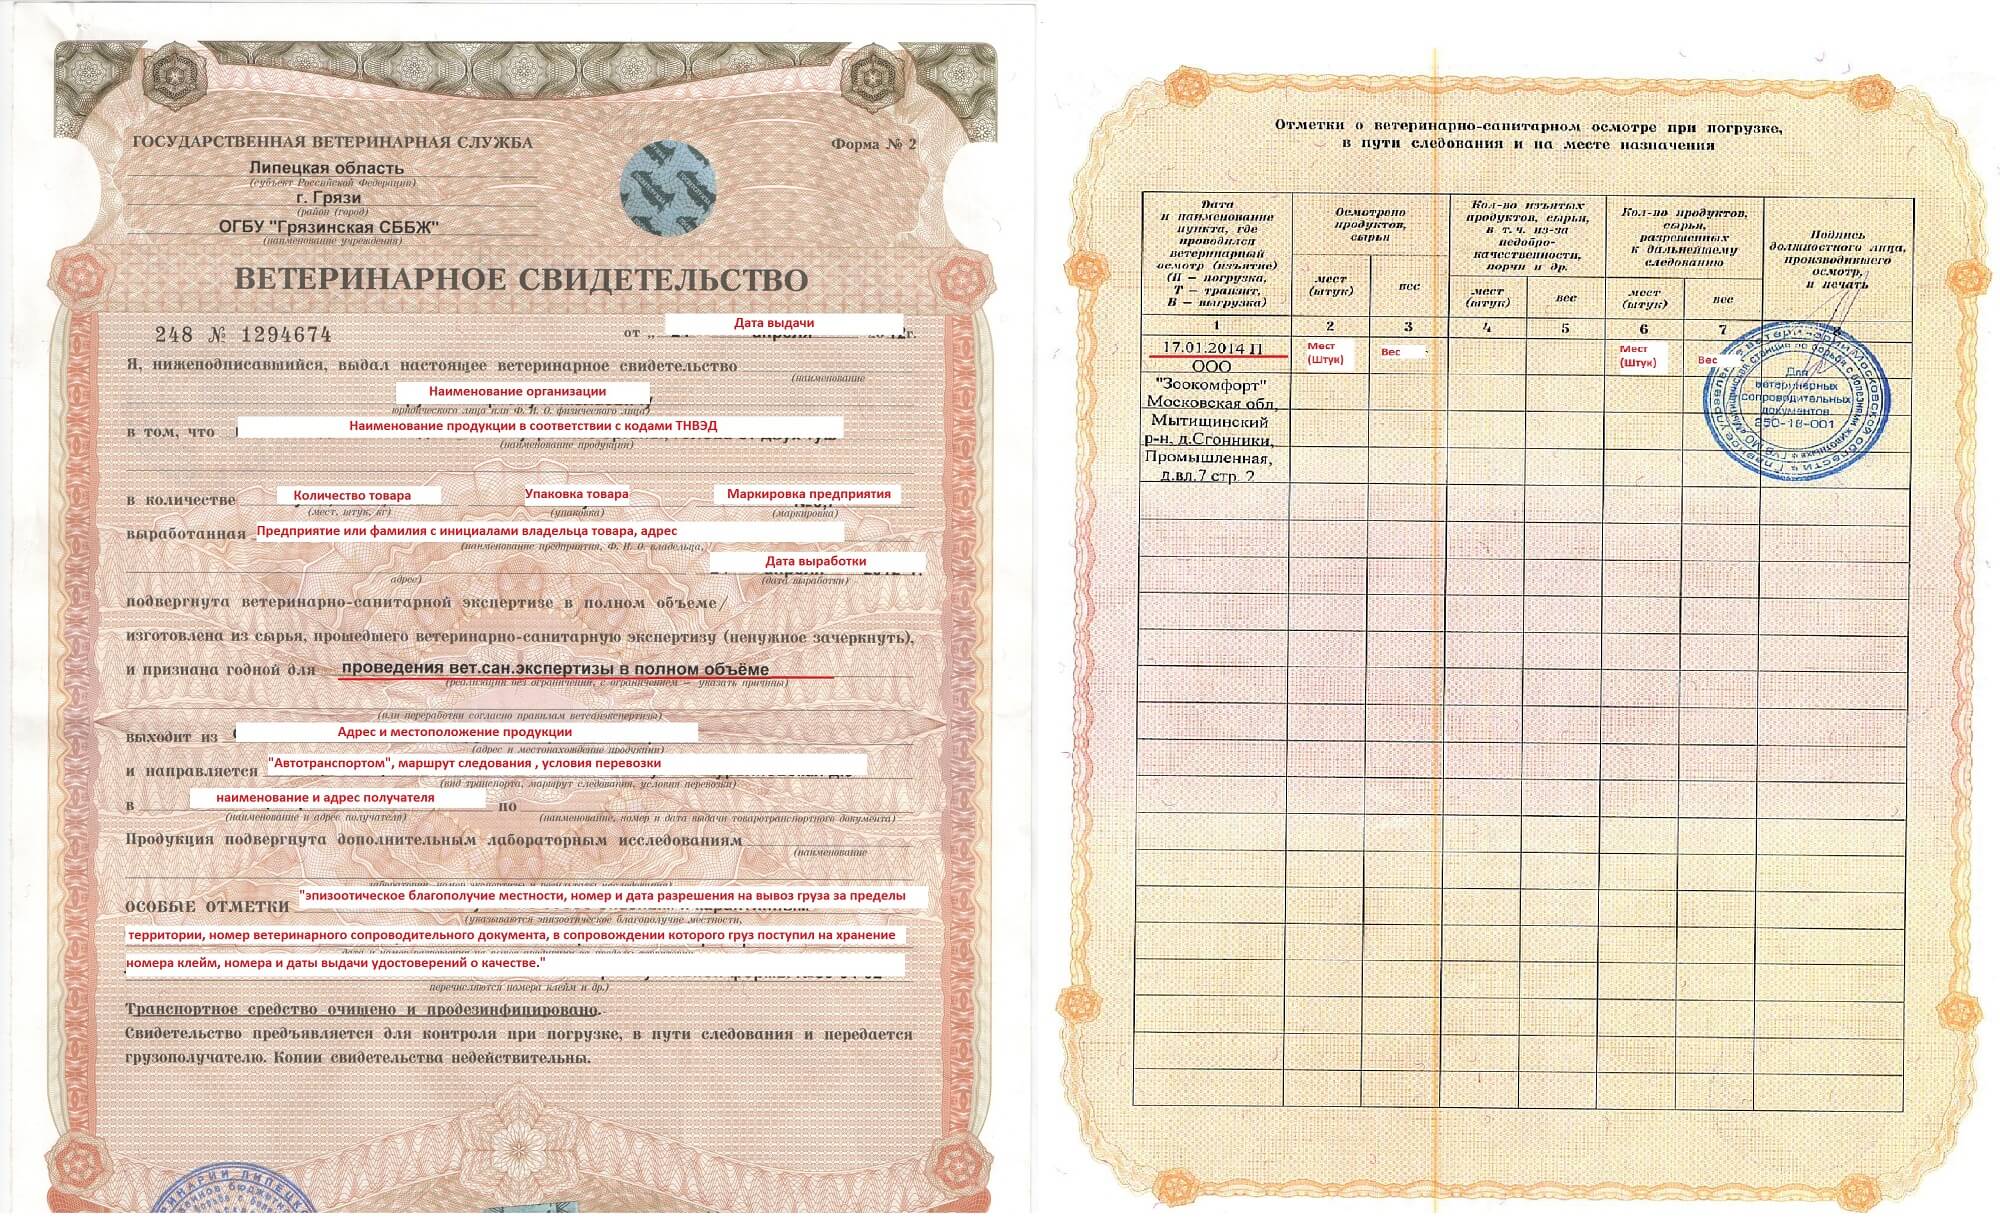 ГОСУДАРСТВЕННАЯ ВЕТЕРИНАРНАЯ СЛУЖБА
Форма № 2
Липецкая область
(субъект Российской Федерации)
г. Грязи
(район (город)
ОГБУ "Грязинская СББЖ"
(наименование учреждения)
ВЕТЕРИНАРНОЕ СВИДЕТЕЛЬСТВО
248 № 1294674
от „
Дата выдачи
г.
Я, нижеподписавшийся, выдал настоящее ветеринарное свидетельство
(наименование
Наименование организации
юридического лица или Ф. И. О. физического лица)
в том, что Наименование продукции в соответствии с кодами ТНВЭД
(наименование продукции)
в количестве Количество товара Упаковка товара Маркировка предприятия
(мест, штук, кг) (упаковка) (маркировка)
выработанная Предприятие или фамилия с инициалами владельца товара, адрес
(наименование предприятия, Ф. И. О. владельца,
Дата выработки
адрес) (дата выработки)
подвергнута ветеринарно-санитарной экспертизе в полном объеме/
изготовлена из сырья, прошедшего ветеринарно-санитарную экспертизу (ненужное зачеркнуть),
и признана годной для проведения вет.сан.экспертизы в полном объёме
(реализации без ограничений, с ограничением — указать причины)
(или переработки согласно правилам ветсанэкспертизы)
выходит из Адрес и местоположение продукции
(адрес и местонахождение продукции)
и направляется "Автотранспортом", маршрут следования , условия перевозки
(вид транспорта, маршрут следования, условия перевозки)
в наименование и адрес получателя по
(наименование и адрес получателя) (наименование, номер и дата выдачи товаротранспортного документа)
Продукция подвергнута дополнительным лабораторным исследованиям
(наименование
ОСОБЫЕ ОТМЕТКИ "эпизоотическое благополучие местности, номер и дата разрешения на вывоз груза за пределы
(указываются эпизоотическое благополучие местности,
территории, номер ветеринарного сопроводительного документа, в сопровождении которого груз поступил на хранение
номера клейм, номера и даты выдачи удостоверений о качестве."
перечисляются номера клейм и др.)
Транспортное средство очищено и продезинфицировано.
Свидетельство предъявляется для контроля при погрузке, в пути следования и передается
грузополучателю. Копии свидетельства недействительны.
Отметки о ветеринарно-санитарном осмотре при погрузке,
в пути следования и на месте назначения
Дата
и наименование
пункта, где
проводился
ветеринарный
осмотр (изъятие)
(П — погрузка,
Т — транзит,
В — выгрузка)
Осмотрено
продуктов,
сырья
мест
(штук)
вес
Кол-во изъятых
продуктов, сырья,
в т. ч. из-за
недобро-
качественности,
порчи и др.
мест
(штук)
вес
Кол-во продуктов,
сырья,
разрешенных
к дальнейшему
следованию
мест
(штук)
вес
Подпись
должностного лица,
производившего
осмотр,
и печать
1 2 3 4 5 6 7 8
17.01.2014 П
ООО
"Зоокомфорт"
Московская обл,
Мытищинский
р-н, д.Сгонники,
Промышленная,
д.вл.7 стр 2
Мест
(Штук)
Вес
Мест
(Штук)
Вес
Для
ветеринарных
сопроводительных
документов
250-18-001